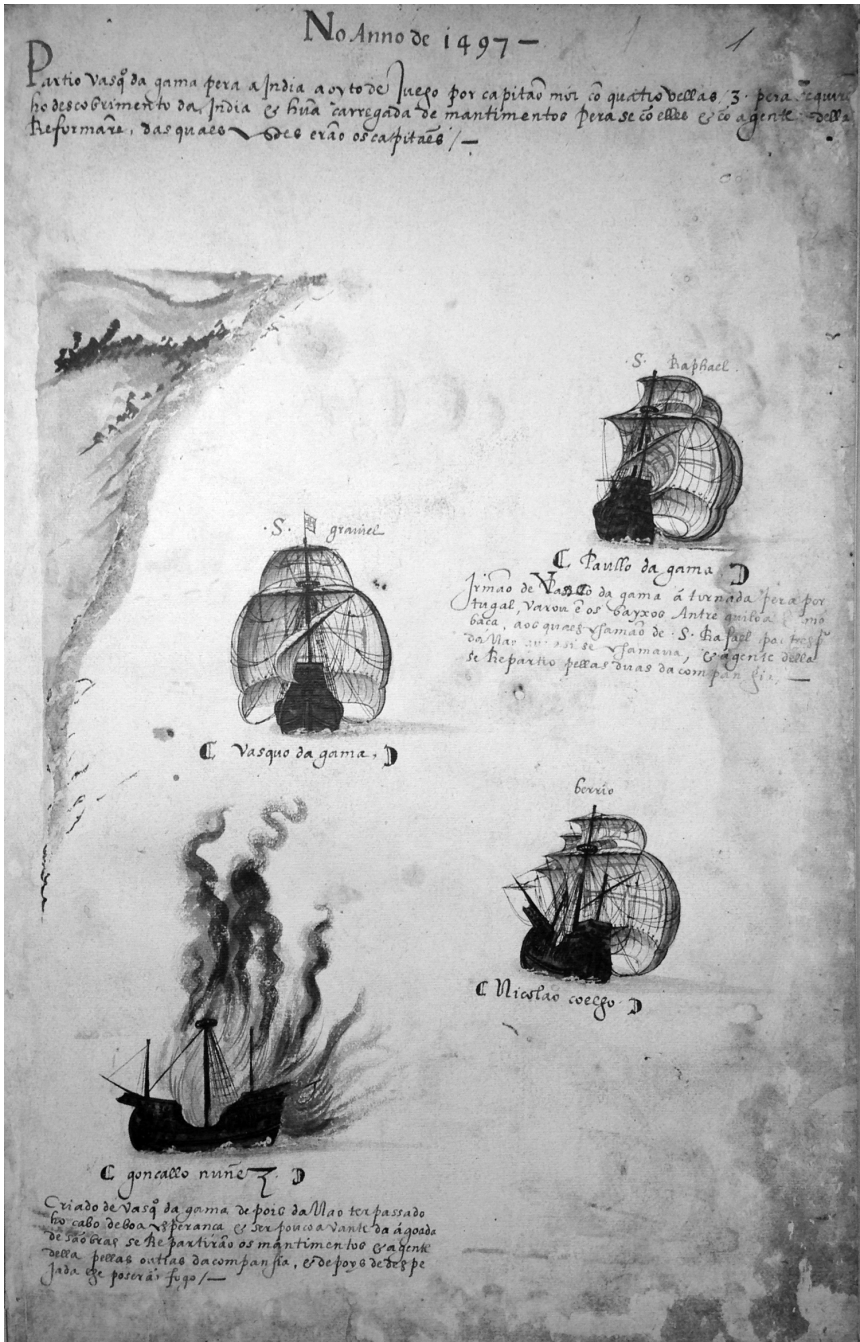 No Anno de 1497 —
1
Partio vasq̃ da gama pera a India a oyto de Julho por capitão mór cõ quatro vellas / 3. pera
ho descobrimento da India & hũa carregada de mantimentos pera se cõ elles & cõ a gente della
Reformarẽ, das quaes erão os capitaẽs /—
.S. Raphael
.S. graviel
( Paullo da gama )
Irmão de Vasco da gama á turnada pera por
tugal, varou ẽ os bayxos Antre quiloa & mõ
baça, aos quaes chamão de .S. Rafael por
da Nao se chamava, & a gente della
se Repartio pellas duas da companhia. —
( vasquo da gama. )
berrio
( Nicolao coelho )
( goncallo nuñez. )
Criado de vasq̃ da gama depois da Nao ter passado
ho cabo de boa esperança & ser pouco a vante da ágoada
de são bras se Repartirão os mantimentos & a gente
della pellas outras da companhia, & depoys de despe
jada lhe poserão fogo /—